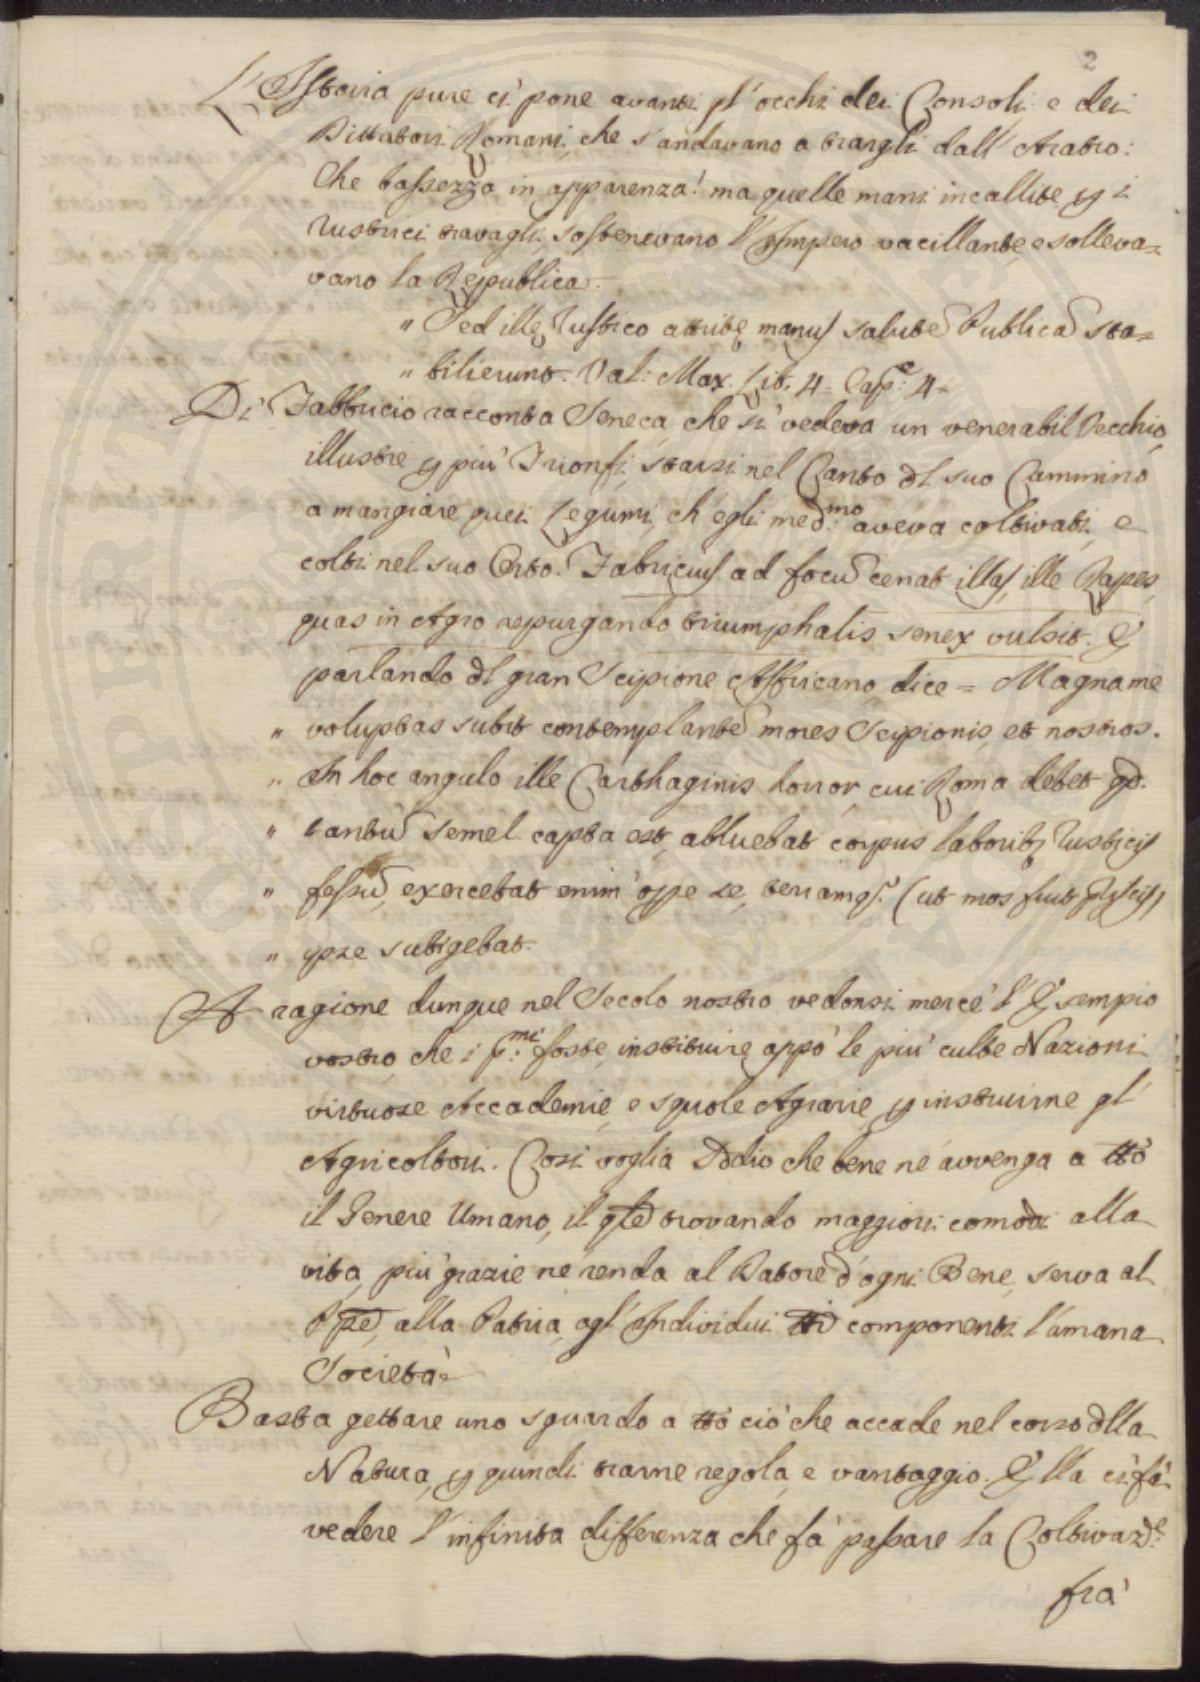 2
L'Istoria pure ci pone avanti gl'occhi dei Consoli e dei
Dittatori Romani, che s'andavano a trargli dall'Aratro:
Che bassezza in apparenza! ma quelle mani incallite p i
rustici travagli, sostenevano l'Impero vacillante, e solleva=
vano la Republica.
" Sed illę Rustico attritę manus salutē Publicā sta=
" bilierunt. Val: Max. Lib. 4. Cap.e 4.
Di Fabbricio racconta Seneca, che si vedeva un venerabil Vecchio,
illustre p più Trionfi, starsi nel Canto dl suo Cammino
a mangiare quei Legumi, ch'egli med:mo aveva coltivati, e
colti nel suo Orto. Fabricius ad focū cenat illas, ille Rapes,
quas in Agro repurgando triumphalis senex vulsit. E
parlando dl gran Scipione Affricano, dice = Magna me
" voluptas subit contemplantē mores Scipionis, et nostros.
" In hoc angulo ille Carthaginis horror, cui Roma debet qd.
" tantū semel capta est, abluebat corpus laborib; Rusticis
" fessū, exercebat enim ope se, terramq. (ut mos fuit Priscis)
" ipse subigebat.
A ragione dunque nel Secolo nostro vedonsi mercè l'Esempio
vostro, che i p:mi foste, instituire appò le più culte Nazioni
virtuose Accademie, e squole Agrarie, p instruirne gl'
Agricoltori. Così voglia Iddio che bene ne avvenga a ttō
il Genere Umano, il qlē trovando maggiori comodi alla
vita, più grazie ne renda al Datore d'ogni Bene, serva al
Ppē, alla Patria, agl'Individui tti componenti l'umana
Società.
Basta gettare uno sguardo a ttō ciò che accade nel corso dlla
Natura, p quindi trarne regola, e vantaggio. Ella ci fà
vedere l'infinita differenza che fà passare la Coltivaz:e
frà